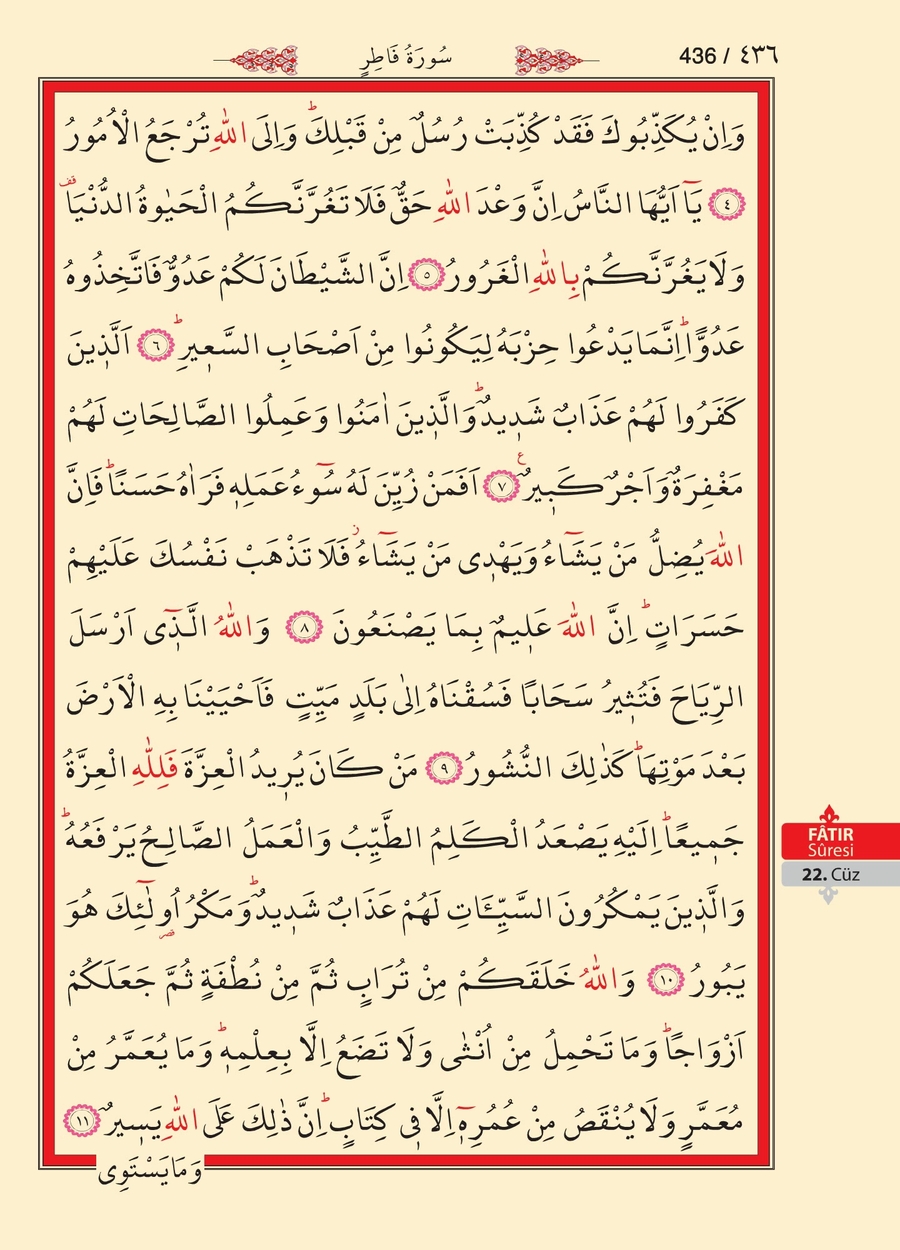 سُورَةُ فَاطِرٍ
436 / ٤٣٦
وَاِنْ يُكَذِّبُوكَ فَقَدْ كُذِّبَتْ رُسُلٌ مِنْ قَبْلِكَۜ وَاِلَى اللّٰهِ تُرْجَعُ الْاُمُورُ
﴿٤﴾ يَٓا اَيُّهَا النَّاسُ اِنَّ وَعْدَ اللّٰهِ حَقٌّ فَلَا تَغُرَّنَّكُمُ الْحَيٰوةُ الدُّنْيَا قف
وَلَا يَغُرَّنَّكُمْ بِاللّٰهِ الْغَرُورُ ﴿٥﴾ اِنَّ الشَّيْطَانَ لَكُمْ عَدُوٌّ فَاتَّخِذُوهُ
عَدُوًّاۜ اِنَّمَا يَدْعُوا حِزْبَهُ لِيَكُونُوا مِنْ اَصْحَابِ السَّع۪يرِۜ ﴿٦﴾ اَلَّذ۪ينَ
كَفَرُوا لَهُمْ عَذَابٌ شَد۪يدٌۜ وَالَّذ۪ينَ اٰمَنُوا وَعَمِلُوا الصَّالِحَاتِ لَهُمْ
مَغْفِرَةٌ وَاَجْرٌ كَب۪يرٌ ع ﴿٧﴾ اَفَمَنْ زُيِّنَ لَهُ سُٓوءُ عَمَلِه۪ فَرَاٰهُ حَسَنًاۜ فَاِنَّ
اللّٰهَ يُضِلُّ مَنْ يَشَٓاءُ وَيَهْد۪ي مَنْ يَشَٓاءُۘ فَلَا تَذْهَبْ نَفْسُكَ عَلَيْهِمْ
حَسَرَاتٍۜ اِنَّ اللّٰهَ عَل۪يمٌ بِمَا يَصْنَعُونَ ﴿٨﴾ وَاللّٰهُ الَّذ۪ٓي اَرْسَلَ
الرِّيَاحَ فَتُث۪يرُ سَحَابًا فَسُقْنَاهُ اِلٰى بَلَدٍ مَيِّتٍ فَاَحْيَيْنَا بِهِ الْاَرْضَ
بَعْدَ مَوْتِهَاۜ كَذٰلِكَ النُّشُورُ ﴿٩﴾ مَنْ كَانَ يُر۪يدُ الْعِزَّةَ فَلِلّٰهِ الْعِزَّةُ
جَم۪يعًاۜ اِلَيْهِ يَصْعَدُ الْكَلِمُ الطَّيِّبُ وَالْعَمَلُ الصَّالِحُ يَرْفَعُهُۜ
وَالَّذ۪ينَ يَمْكُرُونَ السَّيِّـَٔاتِ لَهُمْ عَذَابٌ شَد۪يدٌۜ وَمَكْرُ اُو۬لٰٓئِكَ هُوَ
يَبُورُ ﴿١٠﴾ وَاللّٰهُ خَلَقَكُمْ مِنْ تُرَابٍ ثُمَّ مِنْ نُطْفَةٍ ثُمَّ جَعَلَكُمْ
اَزْوَاجًاۜ وَمَا تَحْمِلُ مِنْ اُنْثٰى وَلَا تَضَعُ اِلَّا بِعِلْمِه۪ۜ وَمَا يُعَمَّرُ مِنْ
مُعَمَّرٍ وَلَا يُنْقَصُ مِنْ عُمُرِه۪ٓ اِلَّا ف۪ي كِتَابٍۜ اِنَّ ذٰلِكَ عَلَى اللّٰهِ يَس۪يرٌ ﴿١١﴾
وَمَا يَسْتَوِي
FÂTIR
Sûresi
22. Cüz